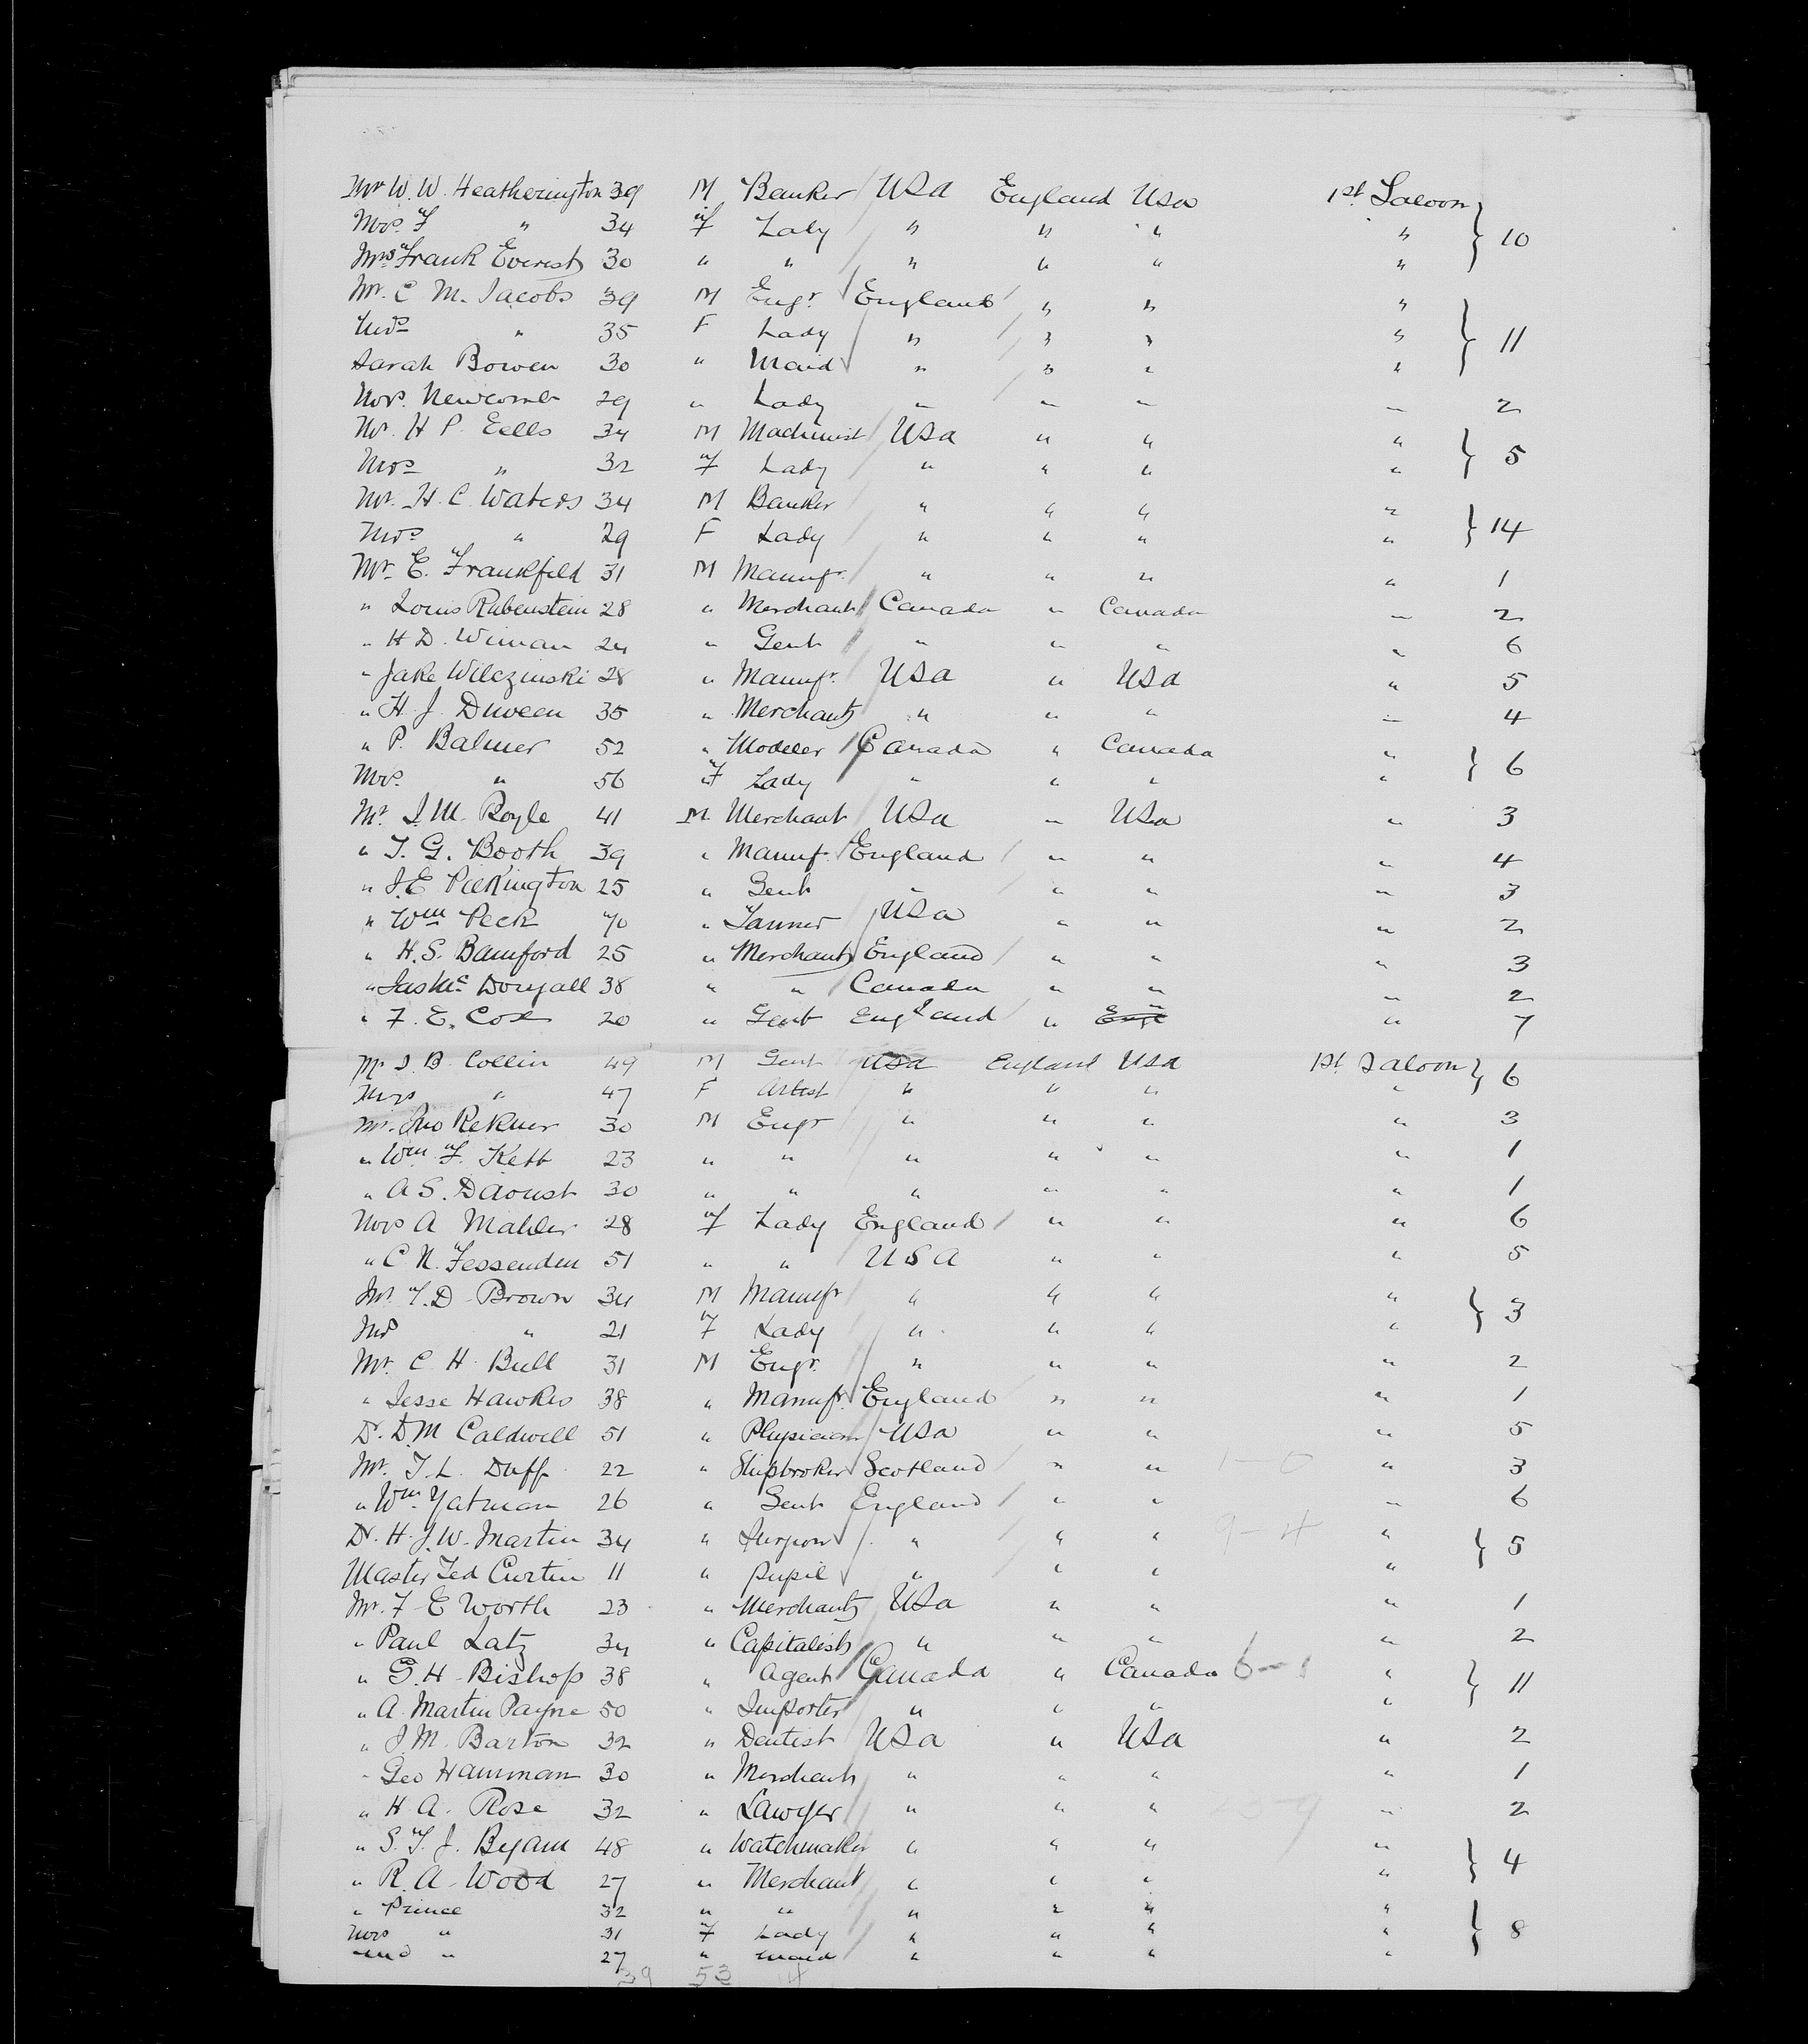 Mr W. W. Heatherington 39 M Banker USA England USA 1st Saloon
Mrs. F " 34 F Lady " " " " } 10
Mrs Frank Everest 30 " " " " " "
Mr. C M. Jacobs 39 M Engr. England " " "
Mrs " 35 F Lady " " " " } 11
Sarah Bowen 30 " Maid " " " "
Mrs. Newcomb 29 " Lady " " " " 2
Mr. H P. Eells 34 M Machinist USA " " " } 5
Mrs " 32 F Lady " " " "
Mr. H. C. Waters 34 M Banker " " " " } 14
Mrs " 29 F Lady " " " "
Mr. E. Frankfeld 31 M Manufr. " " " " 1
" Louis Rubenstein 28 " Merchant Canada " Canada " 2
" H D. Wiman 24 " Gent " " " " 6
" Jake Wilczinski 28 " Manufr. USA " USA " 5
" H. J. Duveen 35 " Merchant " " " " 4
" P. Balmer 52 " Modeler Canada " Canada " } 6
Mrs. " 56 F Lady " " " "
Mr. J. M. Royle 41 M Merchant USA " USA " 3
" T. G. Booth 39 " Manuf. England " " " 4
" J. E Pilkington 25 " Gent " " " " 3
" Wm Peck 70 " Tanner USA " " " 2
" H. S. Bamford 25 " Merchant England " " " 3
" Jas Mc Dougall 38 " " Canada " " " 2
" F. E. Cox 20 " Gent England " Engl " " 7
Mr J. B. Collin 49 M Gent USA England USA 1st Saloon } 6
Mrs " 47 F Artist " " " "
Mr. Jno Rekner 30 M Engr " " " " 3
" Wm F. Kett 23 " " " " " " 1
" A S. Daoust 30 " " " " " " 1
Mrs A Mahler 28 F Lady England " " " 6
" C N. Fessenden 51 " " USA " " " 5
Mr. T. D. Brown 34 M Manufr " " " " } 3
Mrs " 21 F Lady " " " "
Mr. C. H. Bull 31 M Engr. " " " " 2
" Jesse Hawkes 38 " Manufr. England " " " 1
Dr. D. M Caldwell 51 " Physician USA " " " 5
Mr. T. L. Duff 22 " Shipbroker Scotland " " 1-0 " 3
" Wm Yatman 26 " Gent England " " " 6
Dr. H. J. W. Martin 34 " Surgeon " " " 9-4 " } 5
Master Ted Curtin 11 " Pupil " " " "
Mr. F. E Worth 23 " Merchant USA " " " 1
" Paul Latz 34 " Capitalist " " " " 2
" G. H. Bishop 38 " Agent Canada " Canada 6-1 " } 11
" A. Martin Payne 50 " Importer " " " "
" J. M. Barton 32 " Dentist USA " USA " 2
" Geo Hamman 30 " Merchant " " " " 1
" H A. Rose 32 " Lawyer " " " " 2
" S. T. J. Byam 48 " Watchmaker " " " " } 4
" R. A. Wood 27 " Merchant " " " "
" Prince 32 " " " " " "
Mrs " 31 F Lady " " " " } 8
" 27 " Maid " " " "
39 53 4